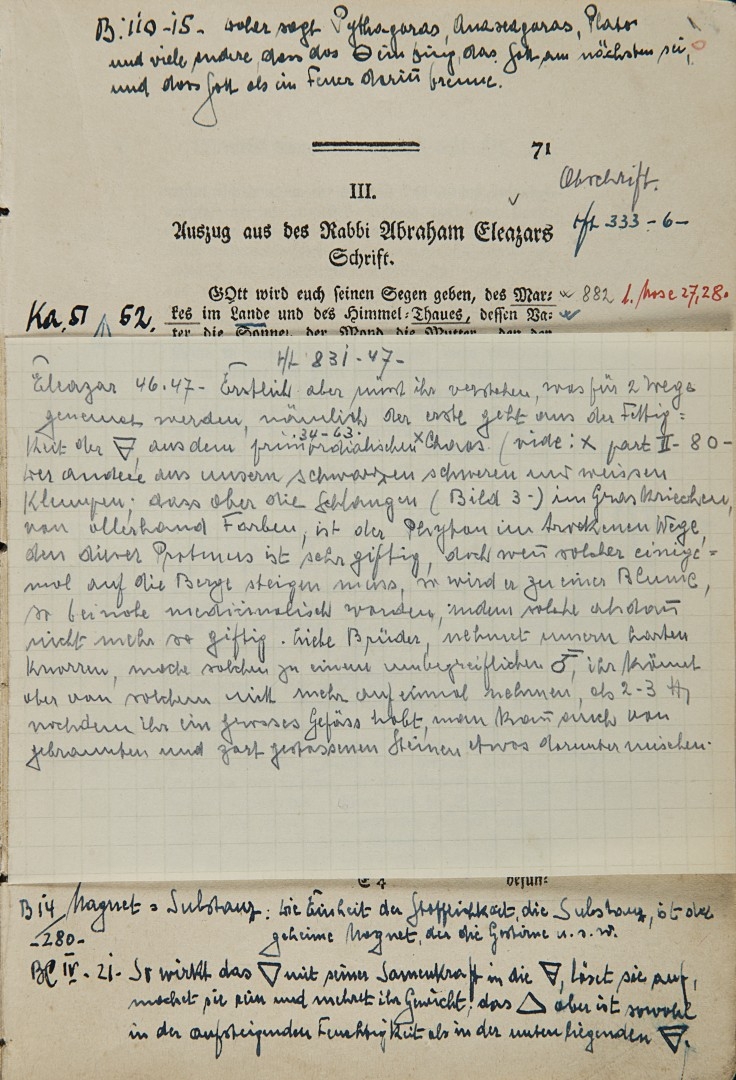 B: 110-15- woher sagt Pythagoras, Anaxagoras, Plato
und viele andere, dass das Ding, das Gott am nächsten sei,
und dass Gott als ein Feuer darin brenne.
71
III.
Abschrift.
Auszug aus des Rabbi Abraham Eleazars
Schrift.
333-6-
GOtt wird euch seinen Segen geben, des Mar-
882 1. Mose 27,28.
kes im Lande und des Himmel-Thaues, dessen Va-
Ka, 51 52.
ter die Sonne, der Mond die Mutter, den der
831-47-
Eleazar 46.47- Erstlich aber müsst ihr verstehen, was für 2 Wege
gemeinet werden, nämlich der erste geht aus der Fettig=
keit der 🜃, aus dem primordialischen Chaos. (vide: x part II-80-
34-63.
der andere aus unsern schwarzen schweren und weissen
Klumpen; dass aber die Schlangen (Bild 3-) im Gras kriechen,
von allerhand Farben, ist der Phyton im trockenen Wege,
den dieser Proteus ist sehr giftig, doch wen solcher einige=
mal auf die Berge steigen muss, so wird er zu einer Blume,
so beinahe medizinalisch worden, indem solche alsdan
nicht mehr so giftig. Liebe Brüder, nehmet unsern harten
Knorren, mache solchen zu einem unbegreiflichen ♂, ihr könnet
aber von solchem nicht mehr auf einmal nehmen, als 2-3 ℔,
nachdem ihr ein grosses Gefäss habt, man kan auch von
gebrannten und zart gestossenen Steinen etwas darunter mischen.
E 4
B 14 Magnet = Substanz: Die Einheit der Stofflichkeit, die Substanz, ist der
-280- geheime Magnet, der die Gestirne u.s.w.
IV-21- So wirkt das 🜄 mit seiner Samenkraft in die 🜃, löset sie auf,
machet sie rein und mehret ihr Gewicht; das 🜂 aber ist sowohl
in der aufsteigenden Feuchtigkeit als in der unten liegenden 🜃.